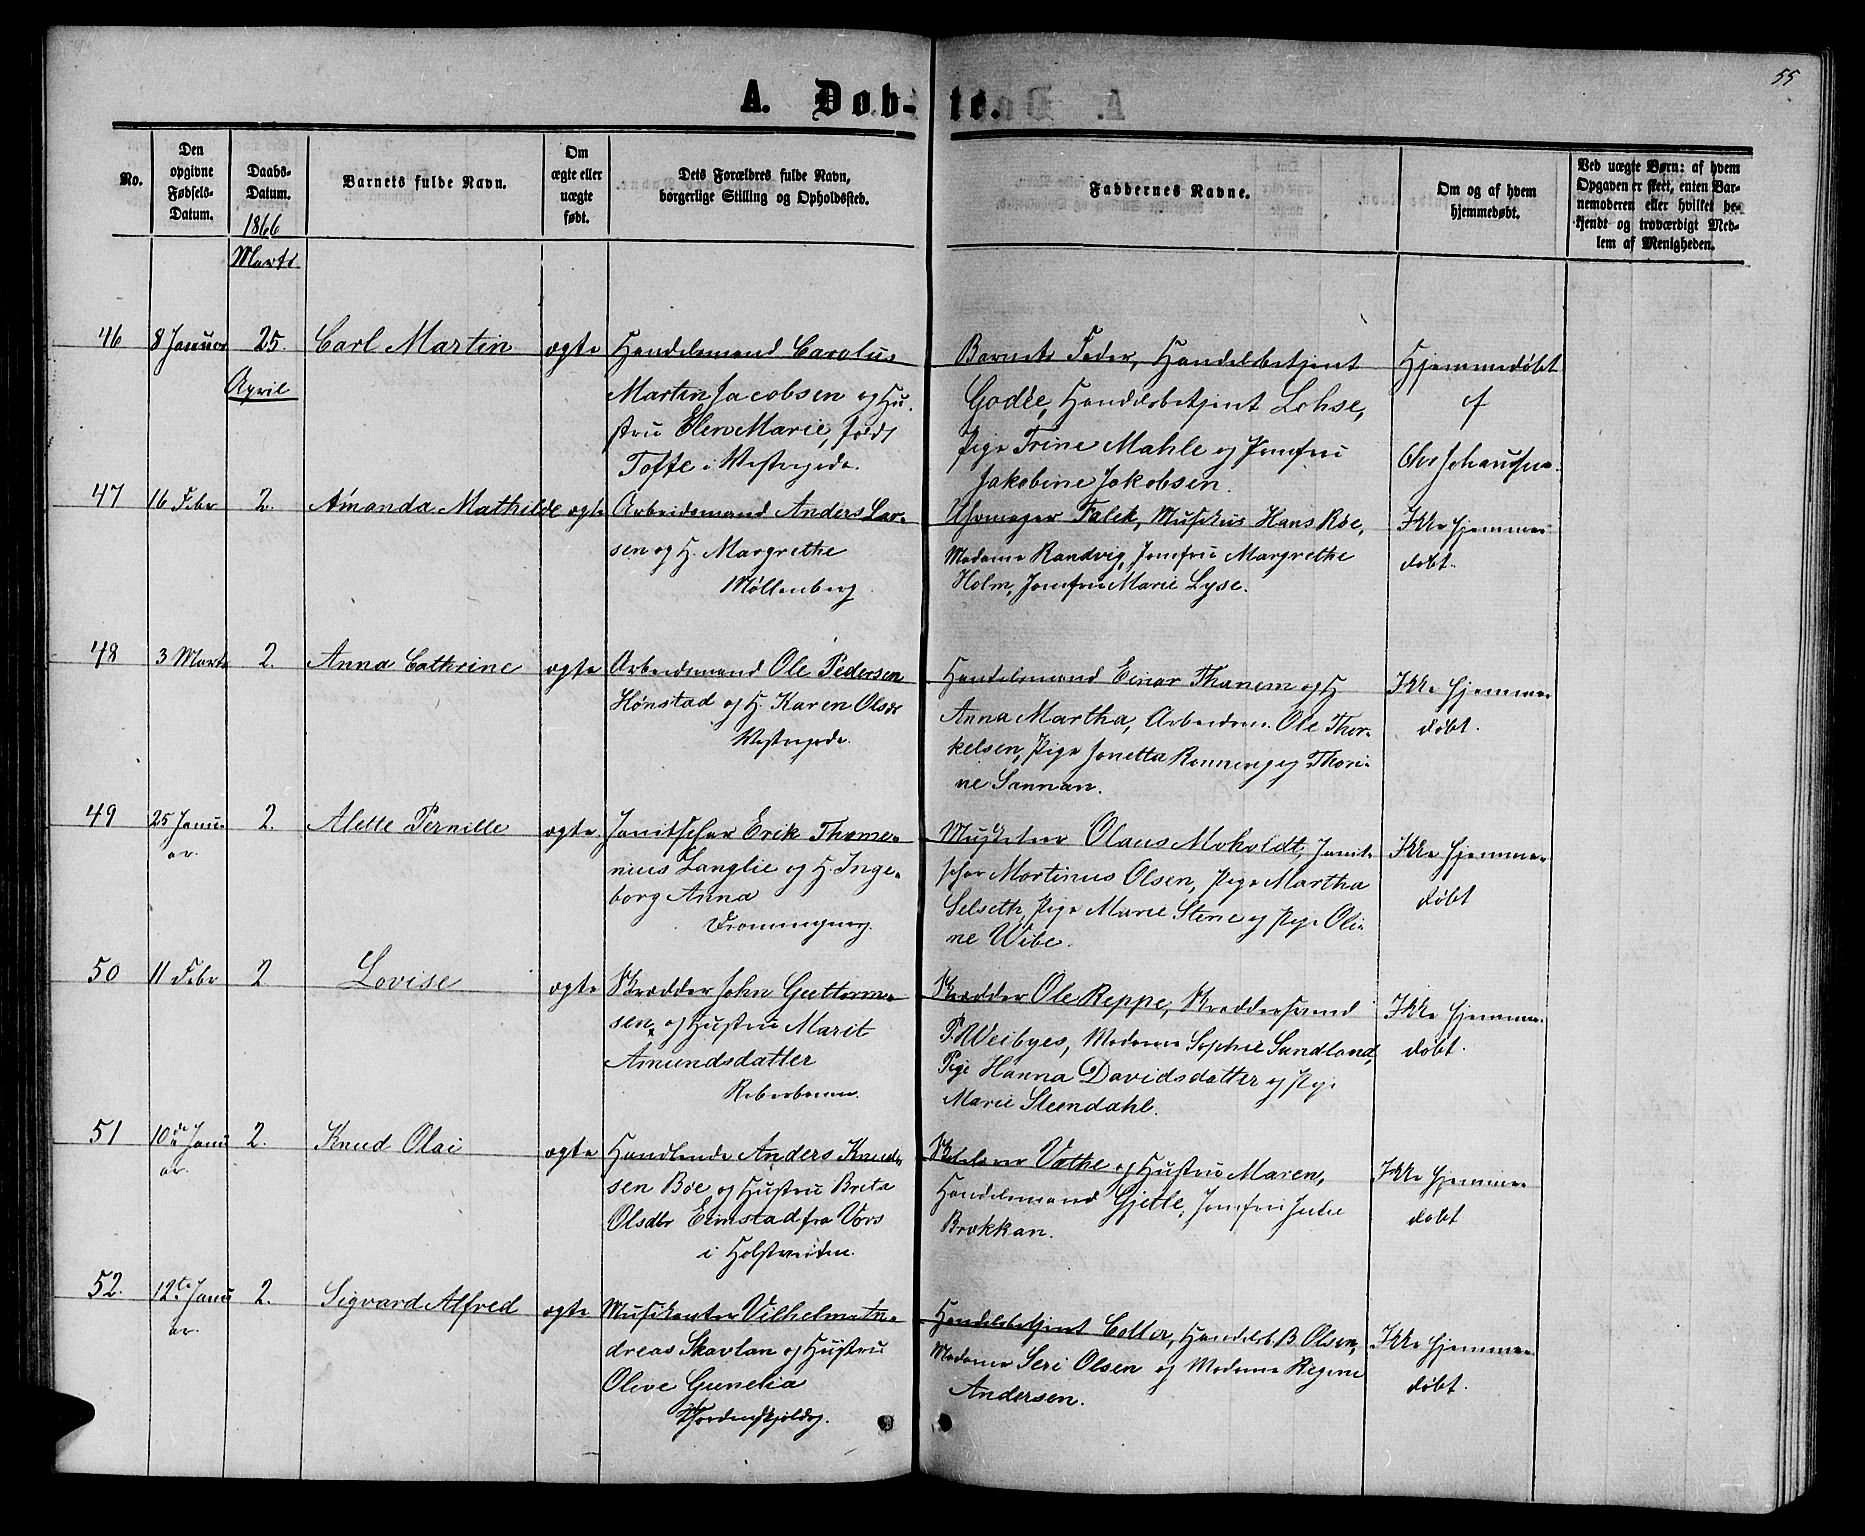 55
A. Døb-te.
No.
Den opgivne Fødsels-Datum.
Daabs-Datum.
Barnets fulde Navn.
Om ægte eller uægte født.
Dets Forældres fulde Navn, borgerlige Stilling og Opholdssted.
Faddernes Navne.
Om og af hvem hjemmedøbt.
Ved uægte Børn: af hvem Opgaven er skeet, enten Barnemoderen eller hvilket bekjendt og troværdigt Medlem af Menigheden.
1866
Marts
46 8 Januar 25. Carl Martin ægte Handelsmand Carolus
Martin Jacobsen og Hu-
stru Elen Marie, født
Toffe i Vestregade.
Barnets Fader, Handelsbetjent
Godèe, Handelsbetjent Lohse,
Pige Trine Mahle og Jomfru
Jakobine Jakobsen.
Hjemmedøbt
af
April
47 16 Febr 2. Amanda Mathilde ægte Arbeidsmand Anders Lar-
sen og H. Margrethe
Møllenberg
Falck, Musikus Hans Røe,
Madame Randvig, Jomfru Margrethe
Holm, Jomfru Marie Lyse.
Ikke hjemme-
døbt.
48 3 Marts 2. Anna Cathrine ægte Arbeidsmand Ole Pedersen
Hønstad og H. Karen Olsdr
Vestregade.
Handelsmand Einar Thanem og H
Anna Martha, Arbeidsm. Ole Thor-
kelsen, Pige Jonetta Rønning og Thori-
ne Sannan.
Ikke hjemme-
døbt.
49 25 Janu-
ar. 2. Alette Pernille ægte. Janitschar Erik Thome-
nius Langlie og H. Inge-
borg Anna
Musketeer Olaus Moholdt, Janit-
schar Martinus Olsen, Pige Martha
Selseth, Pige Marie Stene og Pige Oli-
ne Wibe.
Ikke hjemme-
døbt
50 11 Febr 2. Lovise ægte. Skrædder John Guttorm-
sen og Hustru Marit
Amundsdatter
Reberbanen.
Skrædder Ole Reppe, Skræddersvend
P. Weibyes, Madame Sophie Sundland,
Pige Hanna Davidsdatter og Pige
Marie Steendahl.
Ikke hjemme-
døbt.
51 10de Janu
ar. 2. Knud Olai ægte Handlende Anders Knud-
sen Bøe og Hustru Brita
Olsdtr Eimstad fra Vors
i Holstveiten.
Vathe og Hustru Maren,
Handelsmand Gjetle, Jomfru Julie
Brækkan.
Ikke hjemme-
døbt
52. 12te Janu
ar. 2. Sigvard Alfred ægte Musikanter Vilhelm An-
dreas Skavlan og Hustru
Olive Gunelia
Handelsbetjent Coller, Handelsb. B Olsen,
Madame Seri Olsen og Madame Regine
Andersen.
Ikke hjemme-
døbt.